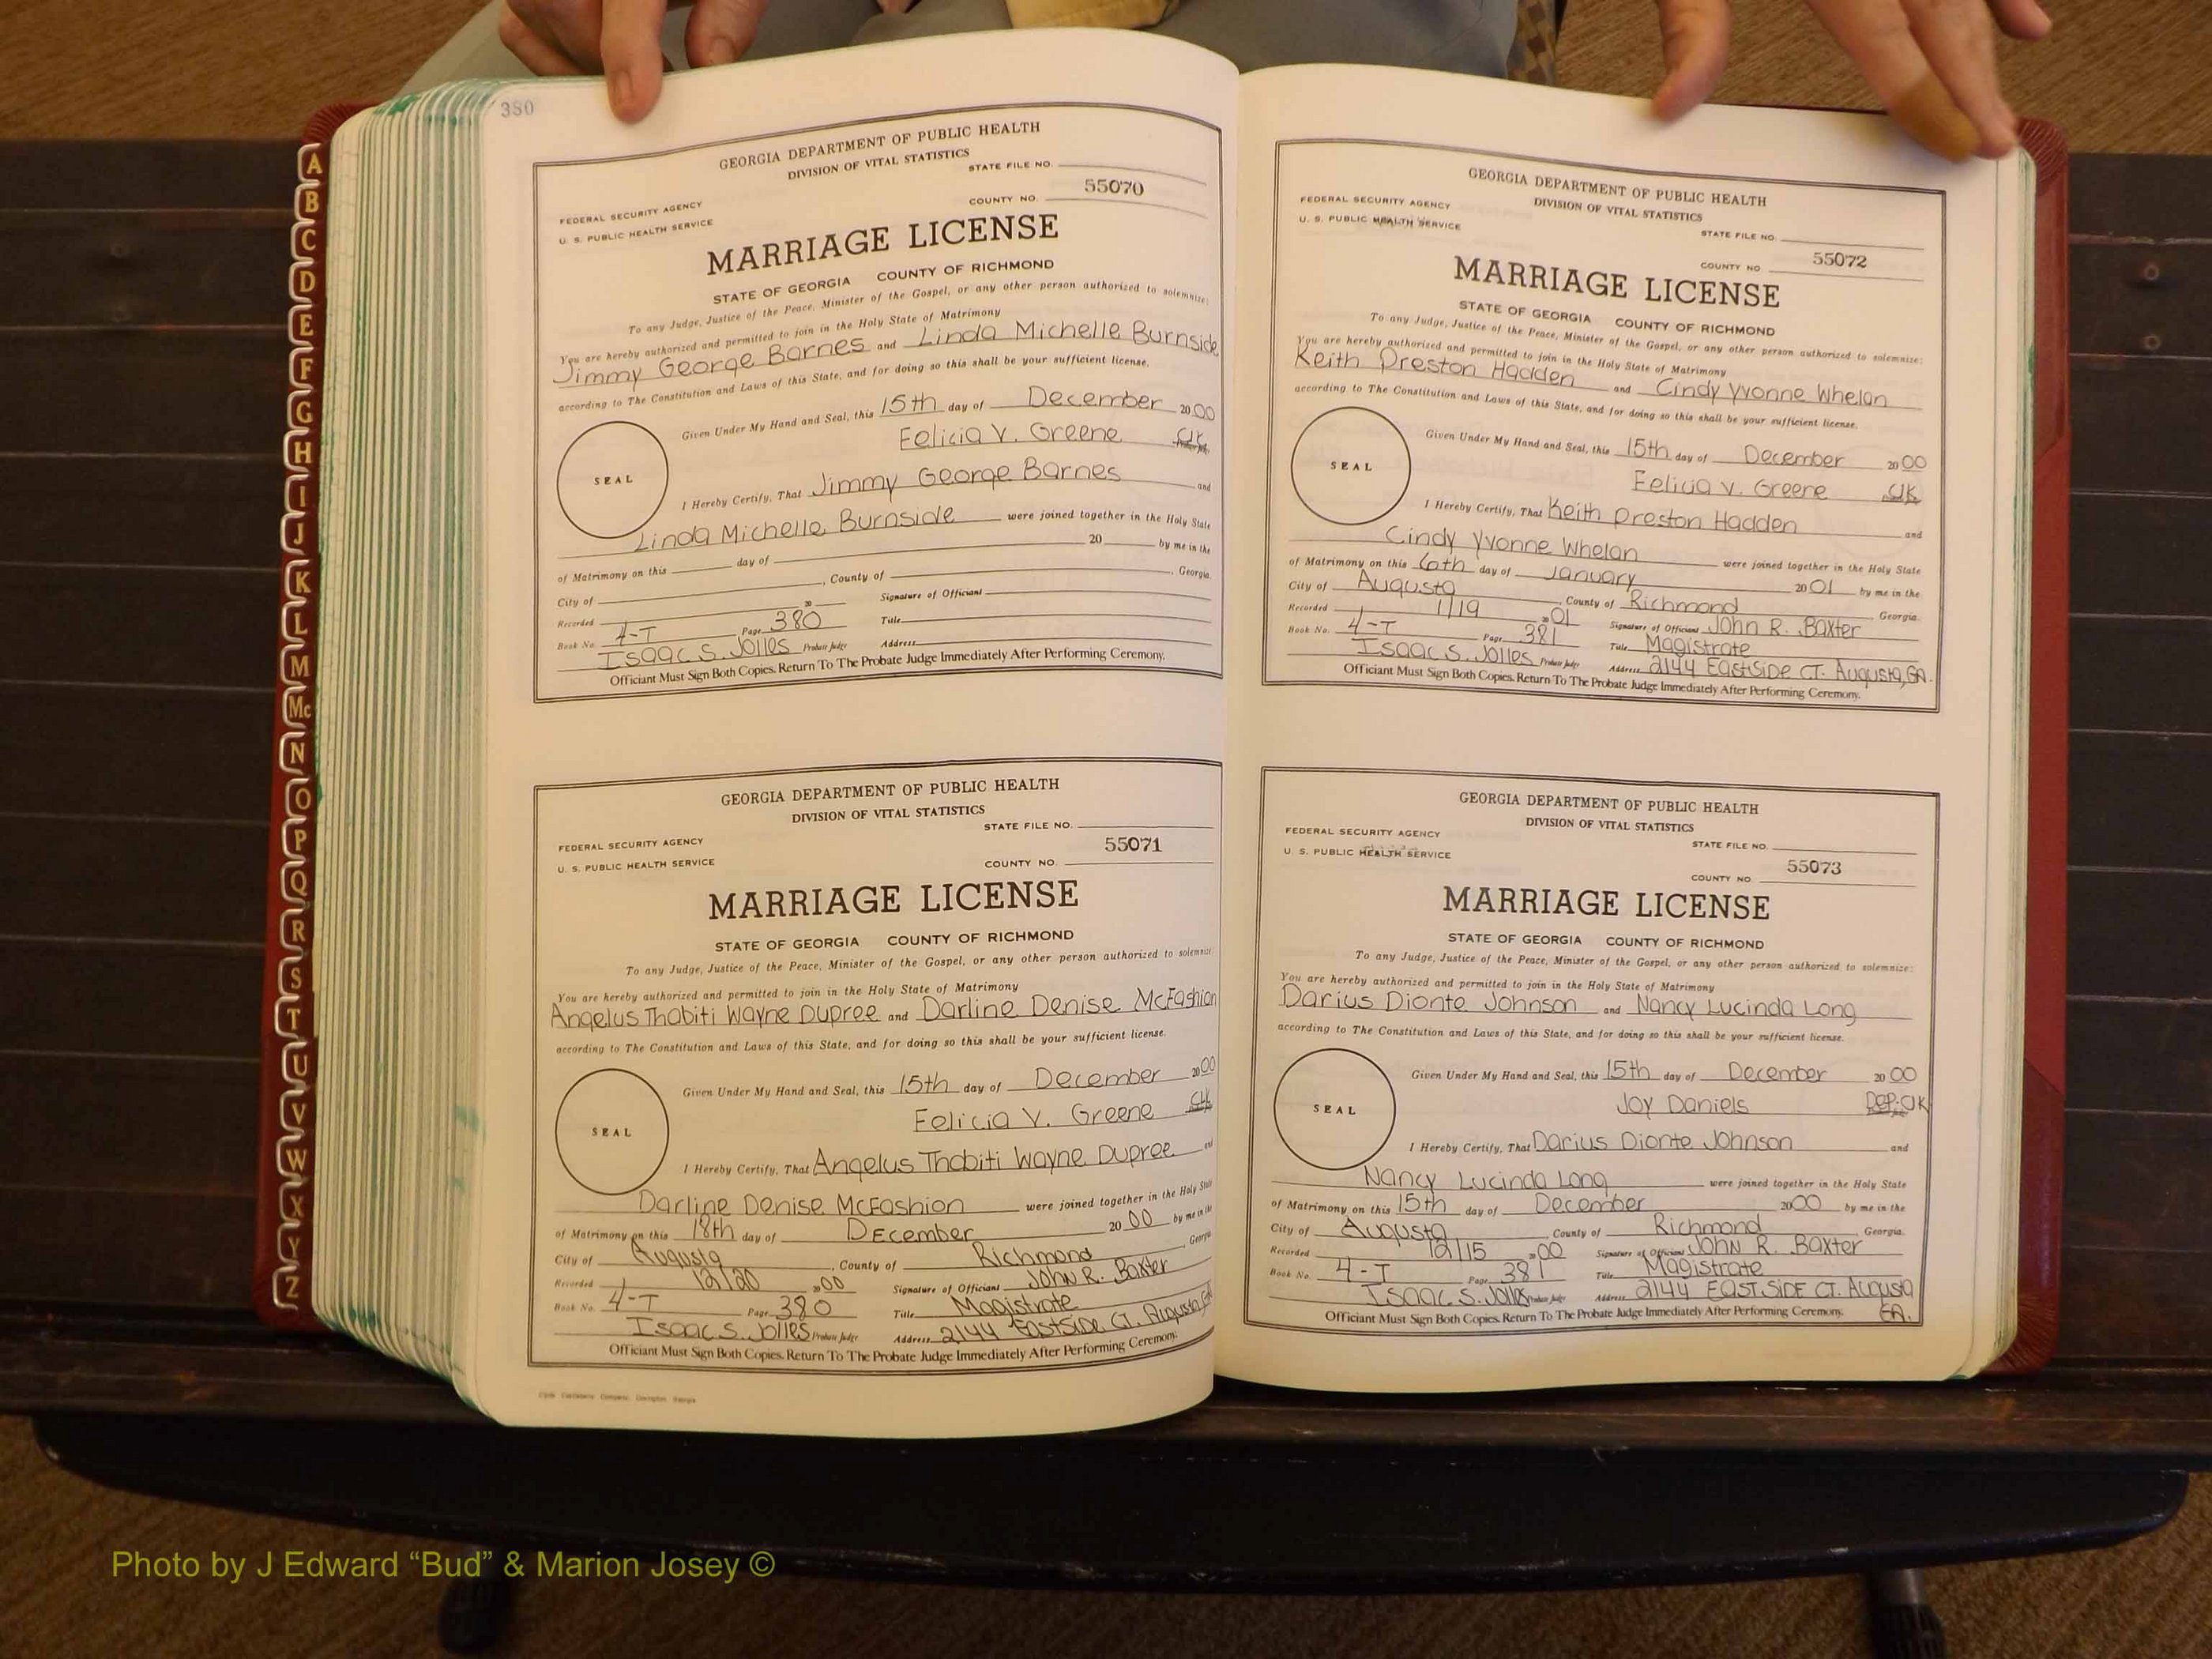 A
B
C
D
E
F
G
H
I
J
K
L
M
Mc
N
O
P
Q
R
S
T
U
V
W
X
Y
Z
380
GEORGIA DEPARTMENT OF PUBLIC HEALTH
DIVISION OF VITAL STATISTICS
STATE FILE NO.
FEDERAL SECURITY AGENCY
U. S. PUBLIC HEALTH SERVICE
COUNTY NO. 55070
MARRIAGE LICENSE
STATE OF GEORGIA COUNTY OF RICHMOND
To any Judge, Justice of the Peace, Minister of the Gospel, or any other person authorized to solemnize:
You are hereby authorized and permitted to join in the Holy State of Matrimony
Jimmy George Barnes and Linda Michelle Burnside
according to The Constitution and Laws of this State, and for doing so this shall be your sufficient license.
Given Under My Hand and Seal, this 15th day of December 2000
Felicia V. Greene Clk
SEAL
I Hereby Certify, That Jimmy George Barnes and
Linda Michelle Burnside were joined together in the Holy State
of Matrimony on this day of 20 by me in the
City of , County of , Georgia.
Recorded 20 Signature of Officiant
Book No. 4-T Page 380 Title
Isaac S. Jolles Probate Judge Address
Officiant Must Sign Both Copies. Return To The Probate Judge Immediately After Performing Ceremony.
GEORGIA DEPARTMENT OF PUBLIC HEALTH
DIVISION OF VITAL STATISTICS
STATE FILE NO.
FEDERAL SECURITY AGENCY
U. S. PUBLIC HEALTH SERVICE
COUNTY NO. 55071
MARRIAGE LICENSE
STATE OF GEORGIA COUNTY OF RICHMOND
To any Judge, Justice of the Peace, Minister of the Gospel, or any other person authorized to solemnize:
You are hereby authorized and permitted to join in the Holy State of Matrimony
Angelus Thabiti Wayne Dupree and Darline Denise McFashion
according to The Constitution and Laws of this State, and for doing so this shall be your sufficient license.
Given Under My Hand and Seal, this 15th day of December 2000
Felicia V. Greene Clk
SEAL
I Hereby Certify, That Angelus Thabiti Wayne Dupree and
Darline Denise McFashion were joined together in the Holy State
of Matrimony on this 18th day of December 20 00 by me in the
City of Augusta , County of Richmond Georgia
Recorded 12/20 2000 Signature of Officiant John R. Baxter
Book No. 4-T Page 380 Title Magistrate
Isaac S. Jolles Probate Judge Address 2144 EastSide CT. Augusta, GA
Officiant Must Sign Both Copies. Return To The Probate Judge Immediately After Performing Ceremony.
GEORGIA DEPARTMENT OF PUBLIC HEALTH
DIVISION OF VITAL STATISTICS
FEDERAL SECURITY AGENCY
U. S. PUBLIC HEALTH SERVICE
STATE FILE NO.
COUNTY NO 55072
MARRIAGE LICENSE
STATE OF GEORGIA COUNTY OF RICHMOND
To any Judge, Justice of the Peace, Minister of the Gospel, or any other person authorized to solemnize:
You are hereby authorized and permitted to join in the Holy State of Matrimony
Keith Preston Hadden and Cindy Yvonne Whelan
according to The Constitution and Laws of this State, and for doing so this shall be your sufficient license.
Given Under My Hand and Seal, this 15th day of December 2000
Felicia V. Greene Clk
SEAL
I Hereby Certify, That Keith Preston Hadden and
Cindy Yvonne Whelan were joined together in the Holy State
of Matrimony on this 6th day of January 20 01 by me in the
City of Augusta , County of Richmond Georgia.
Recorded 1/19 2001 Signature of Officiant John R. Baxter
Book No. 4-T Page 381 Title Magistrate
Isaac S. Jolles Probate Judge Address 2144 EastSide CT. Augusta, GA.
Officiant Must Sign Both Copies. Return To The Probate Judge Immediately After Performing Ceremony.
GEORGIA DEPARTMENT OF PUBLIC HEALTH
DIVISION OF VITAL STATISTICS
FEDERAL SECURITY AGENCY
U. S. PUBLIC HEALTH SERVICE
STATE FILE NO.
COUNTY NO 55073
MARRIAGE LICENSE
STATE OF GEORGIA COUNTY OF RICHMOND
To any Judge, Justice of the Peace, Minister of the Gospel, or any other person authorized to solemnize:
You are hereby authorized and permitted to join in the Holy State of Matrimony
Darius Dionte Johnson and Nancy Lucinda Long
according to The Constitution and Laws of this State, and for doing so this shall be your sufficient license.
Given Under My Hand and Seal, this 15th day of December 2000
Joy Daniels Dep. Clk
SEAL
I Hereby Certify, That Darius Dionte Johnson and
Nancy Lucinda Long were joined together in the Holy State
of Matrimony on this 15th day of December 2000 by me in the
City of Augusta , County of Richmond Georgia.
Recorded 12/15 2000 Signature of Officiant John R. Baxter
Book No. 4-T Page 381 Title Magistrate
Isaac S. Jolles Probate Judge Address 2144 EAST.SIDE CT. Augusta
GA.
Officiant Must Sign Both Copies. Return To The Probate Judge Immediately After Performing Ceremony.
Photo by J Edward “Bud” & Marion Josey ©